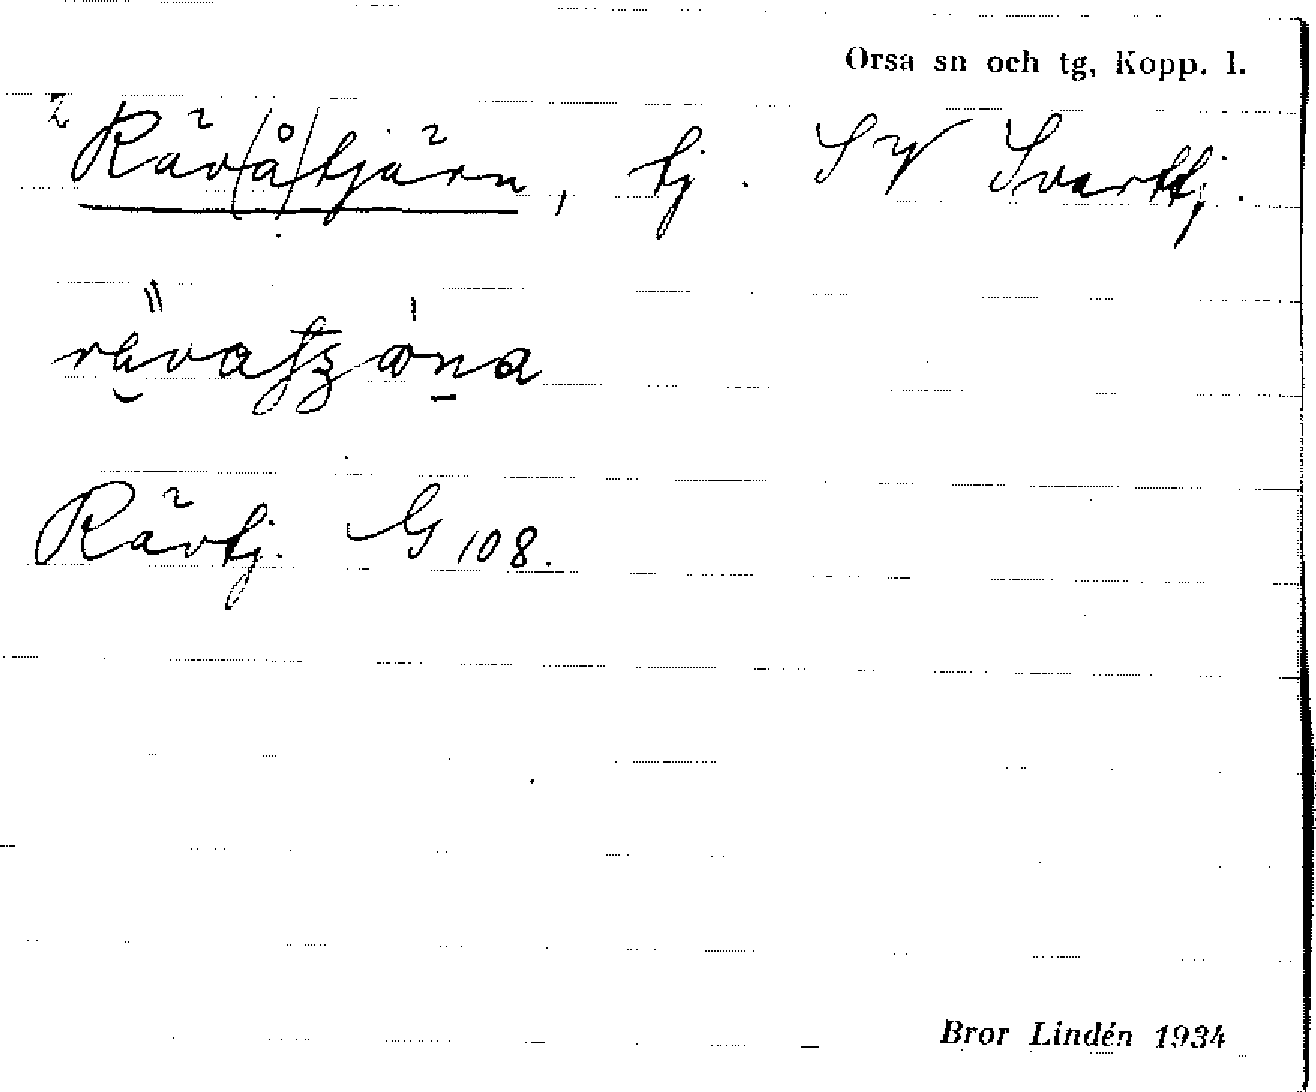 Orsa sn och tg, Kopp. l.
2 Räv(å)tjärn, tj. SV Svarttj.
Rävtj. G 108.
Bror Lindén 1934